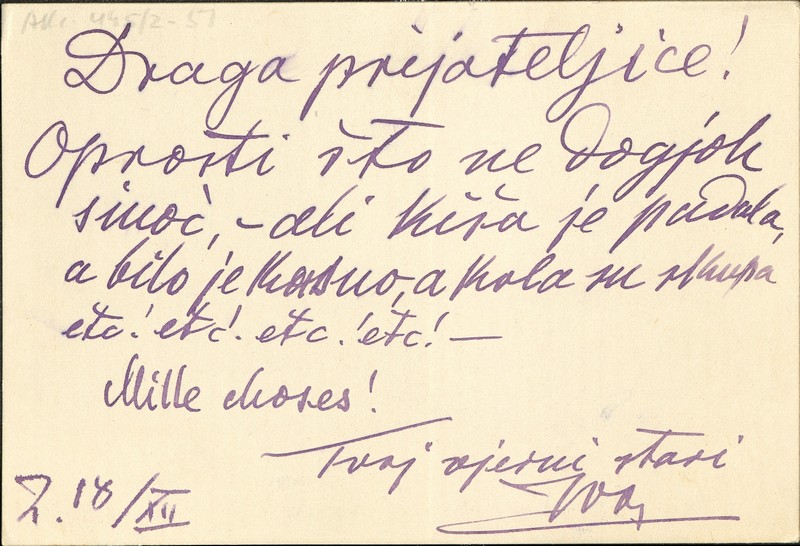 Draga prijateljice!
Oprosti što ne dogjoh
sinoć, – ali kiša je padala,
a bilo je kasno, a kola su skupa
etc! etc! etc! etc! —
Mille choses!
Tvoj vjerni stari
Ivo
Z. 18/XII